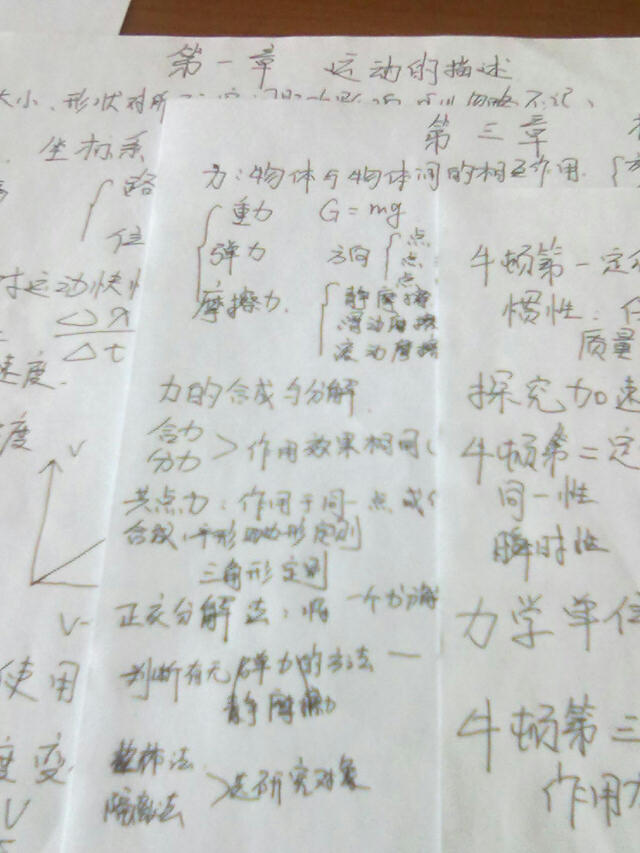 第一章 运动的描述
大小、形状对
坐标系
路
位
时运动快
Δx
Δt
速度.
度
V
V-
使用
度变
V
第三章
力:物体与物体间的相互作用.
重力 G=mg
弹力 方向 点
点
点
摩擦力. 静摩擦
滑动摩擦
滚动摩擦
力的合成与分解
合力
分力 > 作用效果相同(
共点力:作用于同一点或
合成:平行四边形定则
三角形定则
正交分解法:将一个力分
判断有无 弹力的方法 —
静摩擦
整体法
隔离法 >选研究对象
牛顿第一定
惯性:任
质量
探究加速
牛顿第二定
同一性
瞬时性
力学单位
牛顿第三
作用力